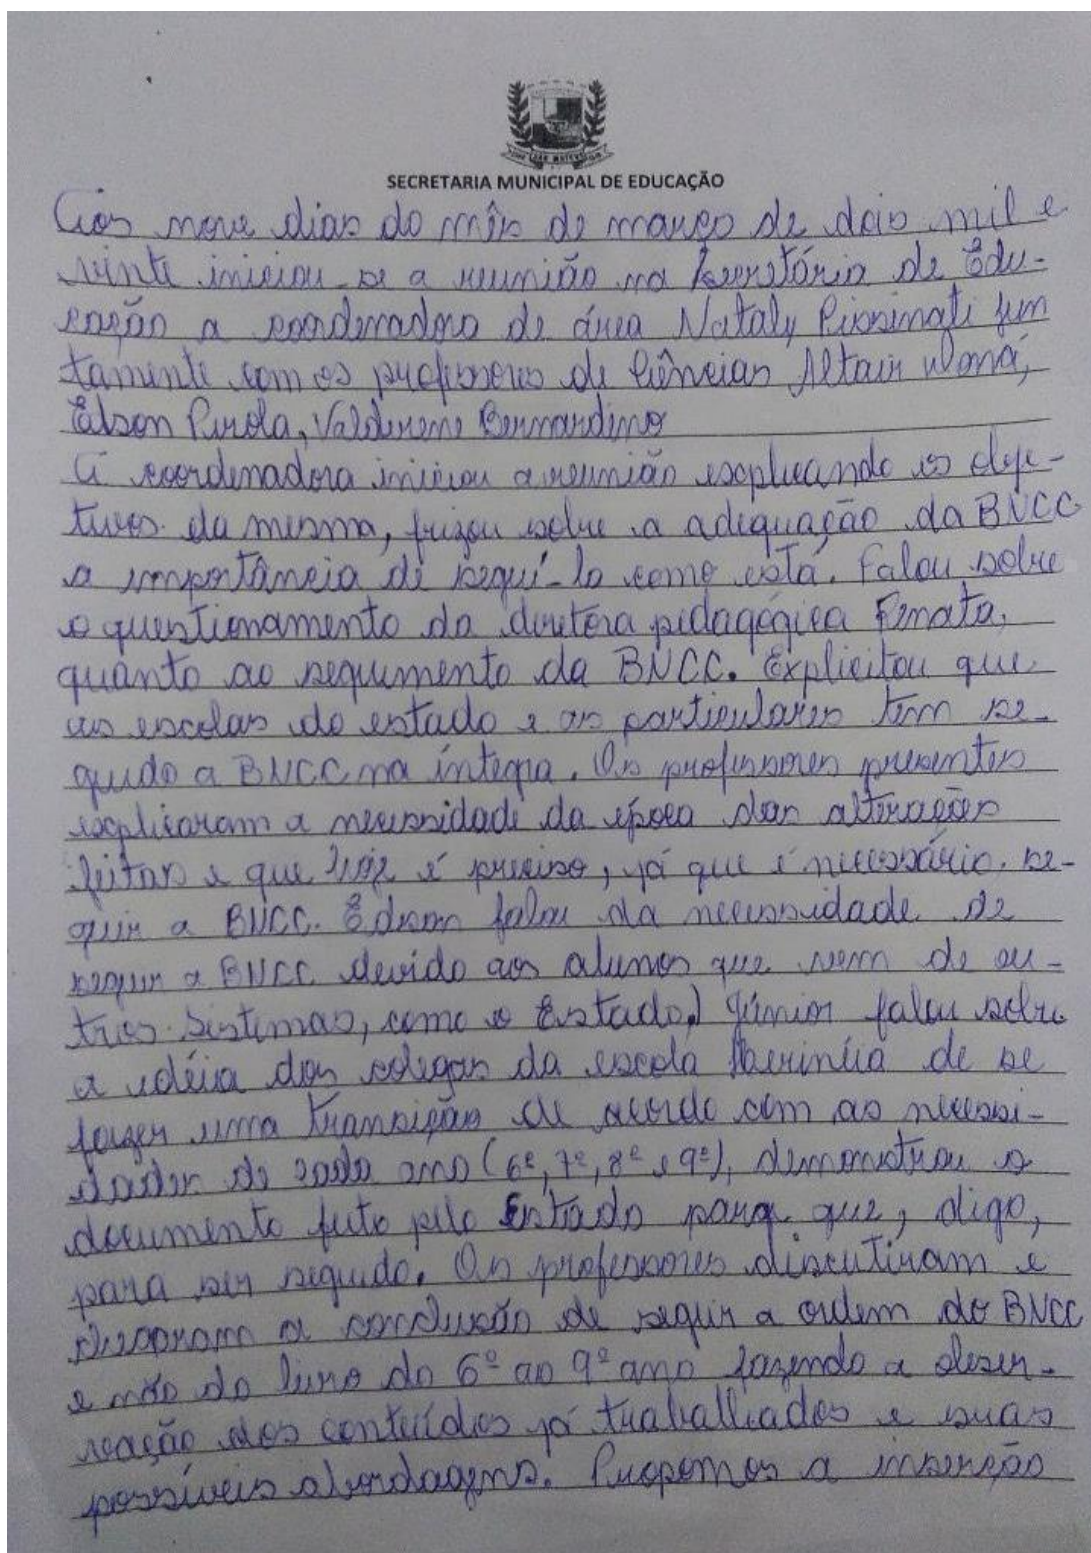 SÃO MATEUS
SECRETARIA MUNICIPAL DE EDUCAÇÃO
Aos nove dias do mês de março de dois mil e
vinte iniciou-se a reunião na Secretária de Edu-
cação a coordenadora de área Nataly Pissinati jun
tamente com os professores de Ciências Altair
Edson Pirola, Valdirene Bernardino
A coordenadora iniciou a reunião explicando os obje-
tivos da mesma, frizou sobre a adequação da BNCC
a importância de seguí-la como está. Falou sobre
o questionamento da diretora pedagógica Renata,
quanto ao seguimento da BNCC. Explicitou que
as escolas do estado e as particulares tem se-
guido a BNCC na íntegra. Os professores presentes
explicaram a necessidade da época das alterações
feitas e que hoje é preciso, já que é necessário se-
guir a BNCC. Edson falou da necessidade de
seguir a BNCC devido aos alunos que vem de ou-
tros sistemas, como o Estado. Júnior falou sobre
a idéia dos colegas da escola de se
fazer uma transição de acordo com as necessi-
dades de cada ano (6º, 7º, 8º e 9º), demonstrou o
documento feito pelo Estado para que, digo,
para ser seguido. Os professores discutiram e
chegaram a conclusão de seguir a ordem do BNCC
e não do livro do 6º ao 9º ano fazendo a obser-
vação dos conteúdos já trabalhados e suas
possíveis abordagens. Propomos a inserção